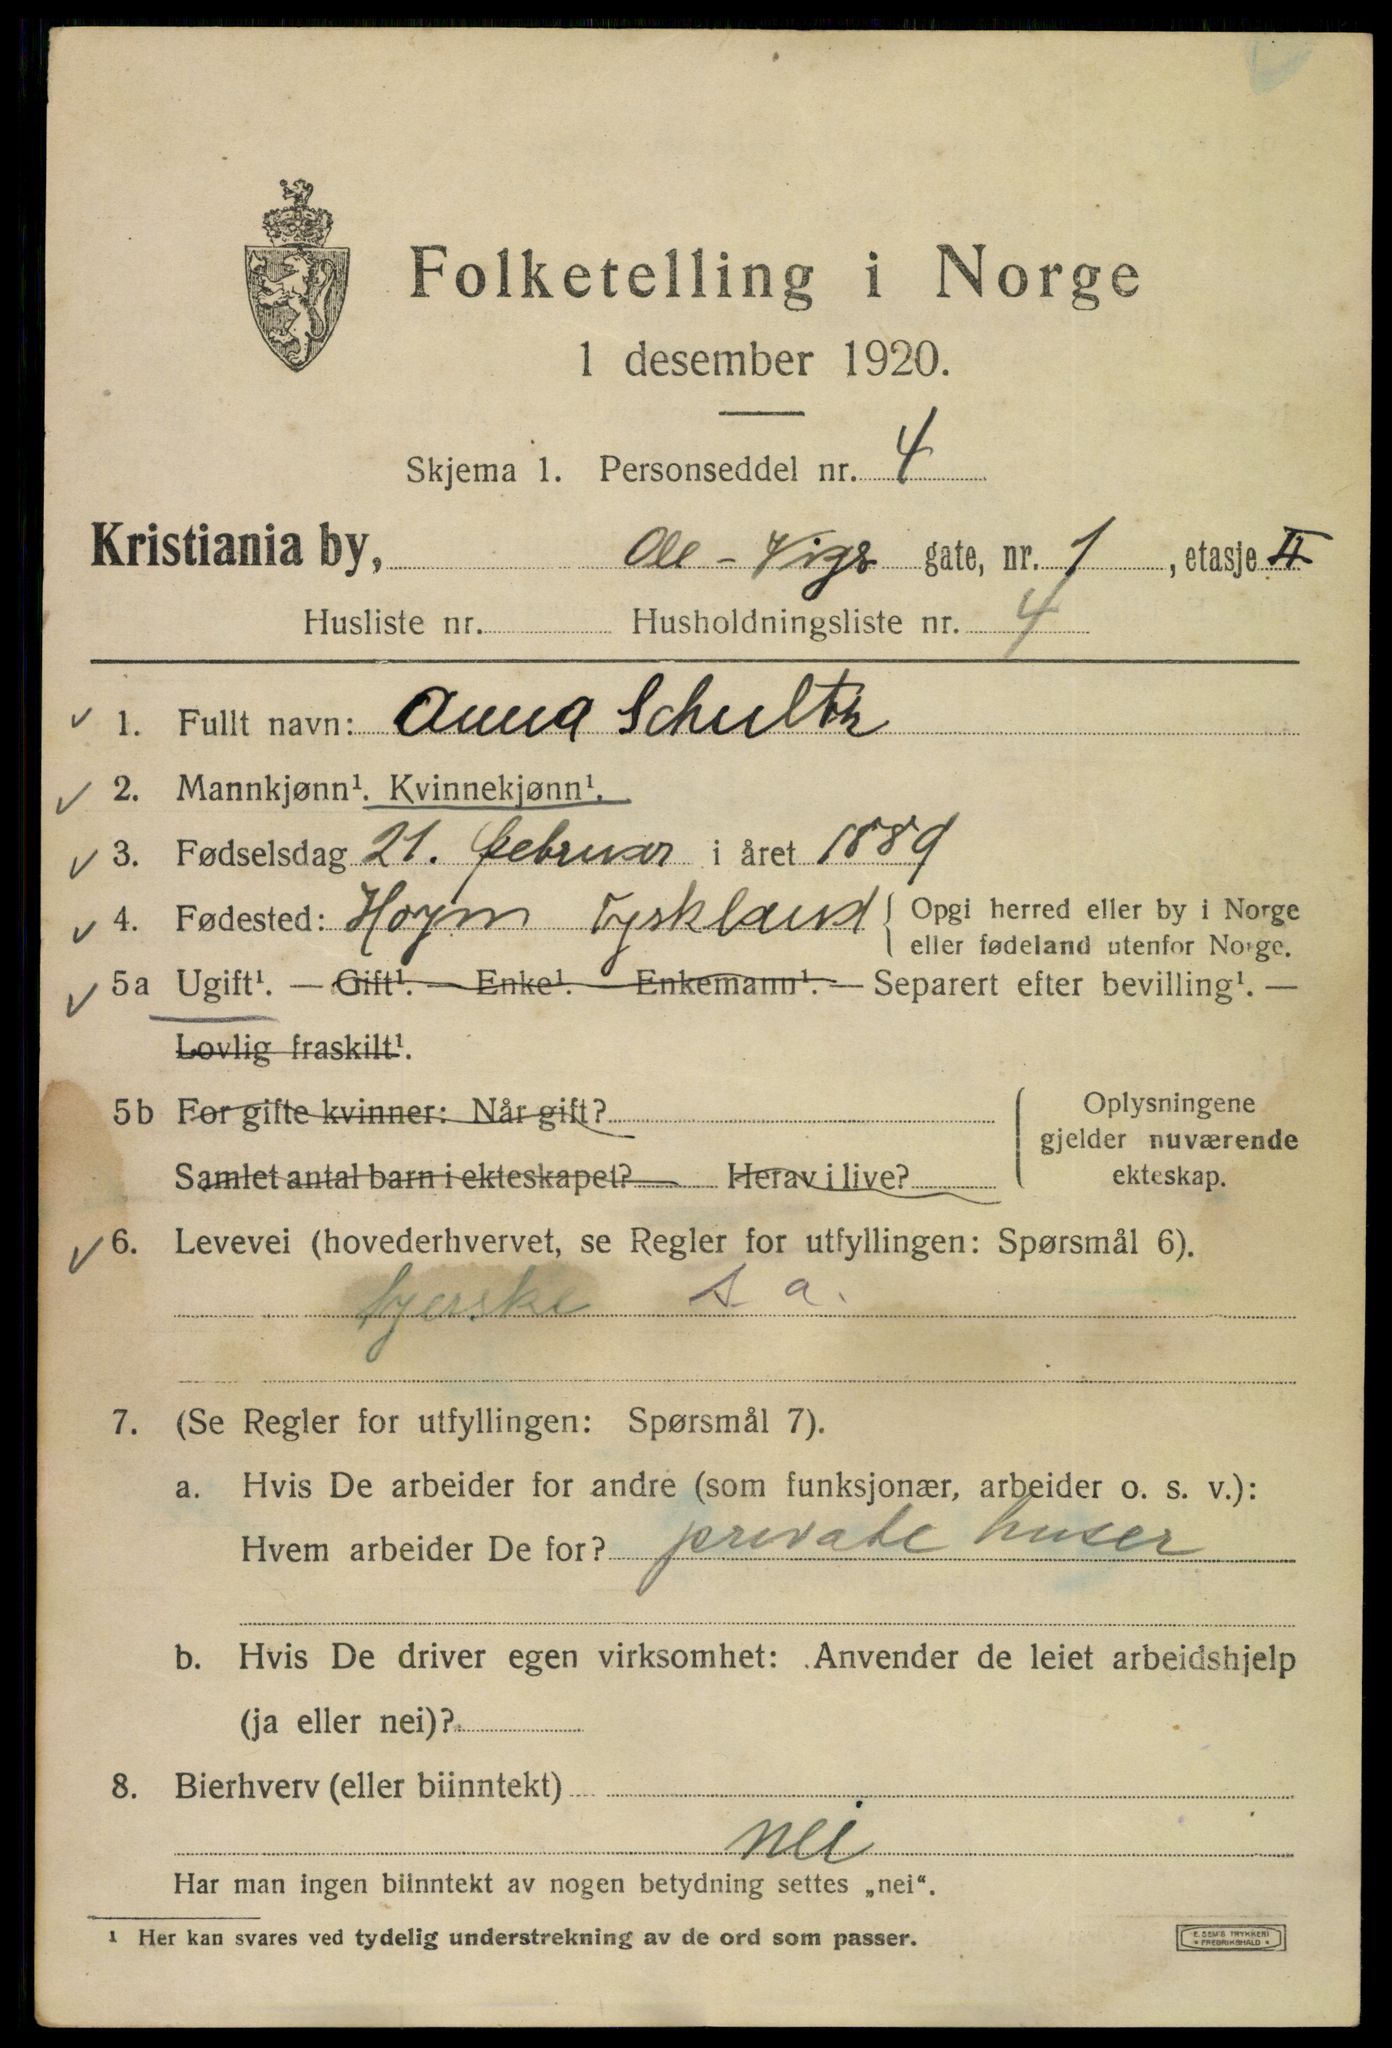 Folketelling i Norge
1 desember 1920.
Skjema 1. Personseddel nr. 4
Kristiania by, Ole-Vigs gate, nr. 1, etasje II
Husliste nr. Husholdningsliste nr. 4
1. Fullt navn: Anna Schultz
2. Mannkjønn¹. Kvinnekjønn¹.
3. Fødselsdag 21. februar i året 1889
4. Fødested: Hoym Tyskland { Opgi herred eller by i Norge
eller fødeland utenfor Norge.
5a Ugift¹. — Gift¹. — Enke¹. — Enkemann¹. — Separert efter bevilling¹. —
Lovlig fraskilt¹.
5b For gifte kvinner: Når gift?
Samlet antal barn i ekteskapet? Herav i live?
Oplysningene
gjelder nuværende
ekteskap.
6. Levevei (hovederhvervet, se Regler for utfyllingen: Spørsmål 6).
syerske s. a.
7. (Se Regler for utfyllingen: Spørsmål 7).
a. Hvis De arbeider for andre (som funksjonær, arbeider o. s. v.):
Hvem arbeider De for? private huser
b. Hvis De driver egen virksomhet: Anvender de leiet arbeidshjelp
(ja eller nei)?
8. Bierhverv (eller biinntekt)
nei
Har man ingen biinntekt av nogen betydning settes „nei“.
¹ Her kan svares ved tydelig understrekning av de ord som passer.
E. SEM'S TRYKKERI
* FREDRIKSHALD *